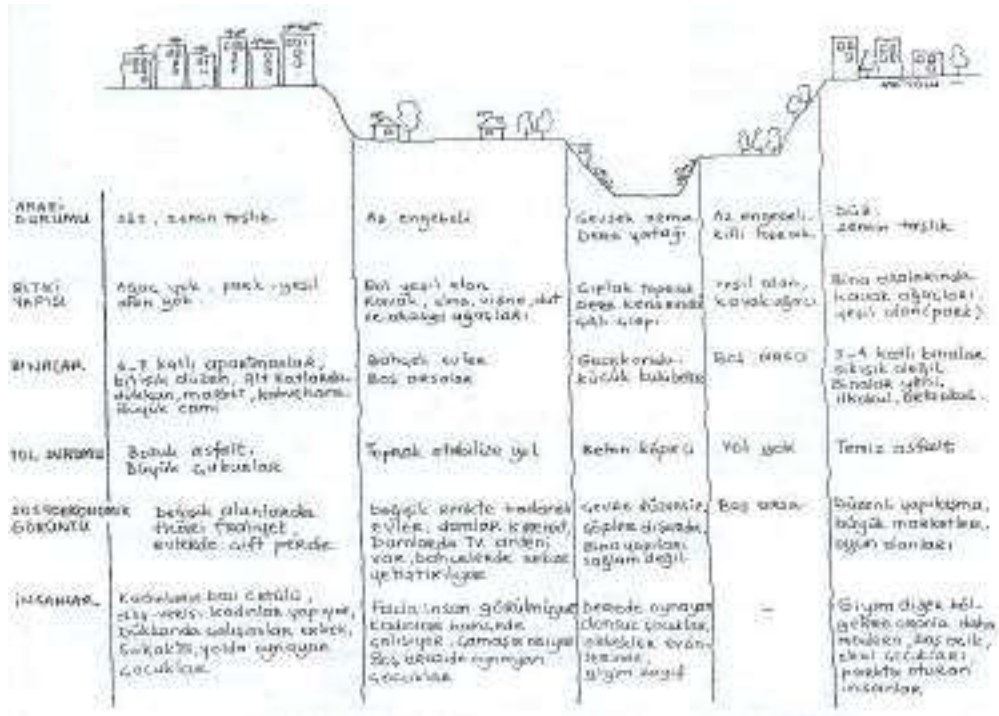 ARAZİ
DURUMU
Düz, zemin taşlık.
Az engebeli
Gevşek zemin
Dere yatağı
Az engebeli.
killi toprak.
Düz.
zemin taşlık.
BİTKİ
YAPISI
Ağaç yok, park-yeşil
alan yok.
Bol yeşil alan
Kavak, elma, vişne, dut
ve akasya ağaçları.
Çıplak toprak
Dere kenarında
çalı çırpı
Yeşil alan,
kavak ağacı
Bina aralarında
kavak ağaçları.
yeşil alan (park).
BİNALAR
6-7 katlı apartmanlar,
bitişik düzen, Alt katlarda
dükkan, market, kahvehane.
Büyük cami
Bahçeli evler
Boş arsalar
Gecekondu.
küçük kulübeler
Boş arsa
3-4 katlı binalar
sıkışık değil.
Binalar yeni,
ilkokul,
YOL DURUMU
Bozuk asfalt.
Büyük çukurlar
Toprak stabilize yol
Beton köprü
Yol yok
Temiz asfalt
SOSYOEKONOMİK
GÖRÜNTÜ
Değişik alanlarda
ticari faaliyet,
evlerde çift perde
Değişik renkte badanalı
evler, damlar kiremit,
Damlarda TV anteni
var, bahçelerde sebze
yetiştiriliyor
Çevre düzensiz,
çöpler dışarda,
Bina yapıları
sağlam değil
Boş arsa
Düzenli yapılaşma,
büyük marketler,
oyun alanları
İNSANLAR
Kadınların başı örtülü,
alış-verişi kadınlar yapıyor,
Dükkanda çalışanlar erkek,
Sokakta, yolda oynayan
çocuklar
Fazla insan görülmüyor
Kadınlar
çalışıyor, çamaşır asıyor
Boş arsada oynayan
çocuklar
Derede oynayan
donsuz çocuklar,
erkekler evin
giyim zayıf
-
Giyim diğer böl-
gelere oranla daha
modern, baş açık,
okul çocukları
parkta oturan
insanlar